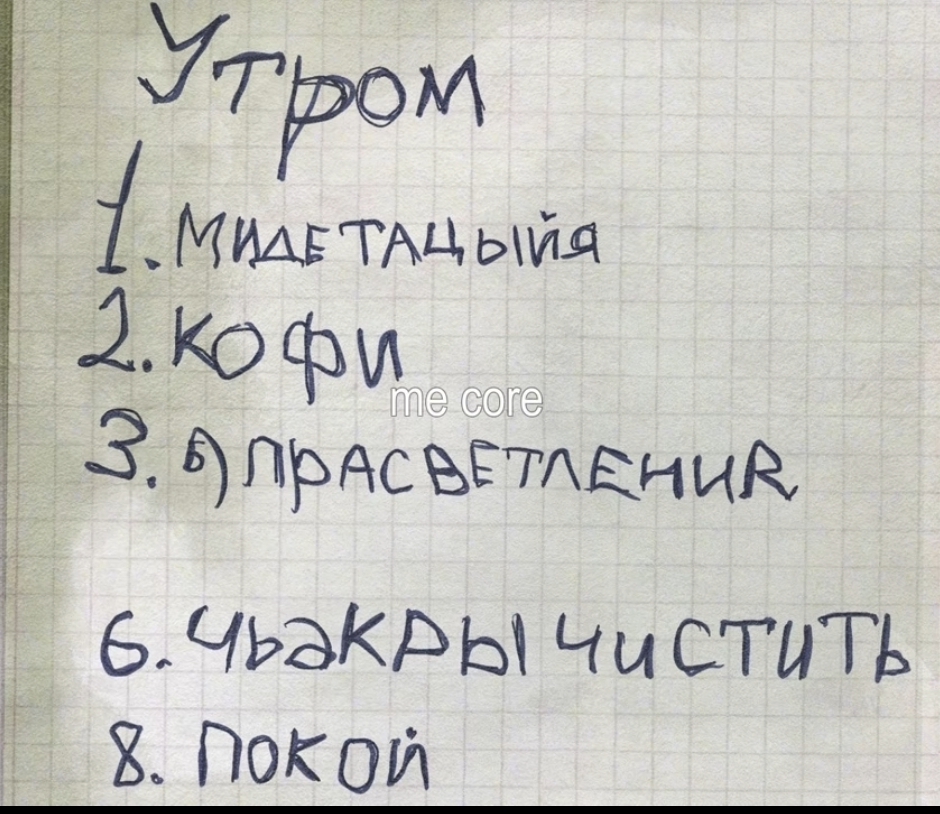 Утром
1. МИДЕТАЦЫЙЯ
2. КОФИ
me core
3. б) ПРАСВЕТЛЕНИЯ
6. ЧЬАКРЫ ЧИСТИТЬ
8. ПОКОЙ